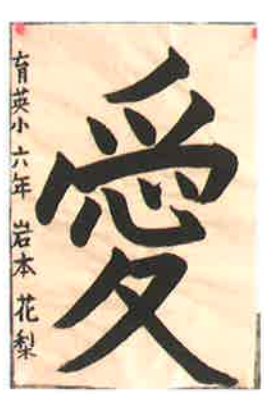 愛
育英小 六年 岩本 花梨